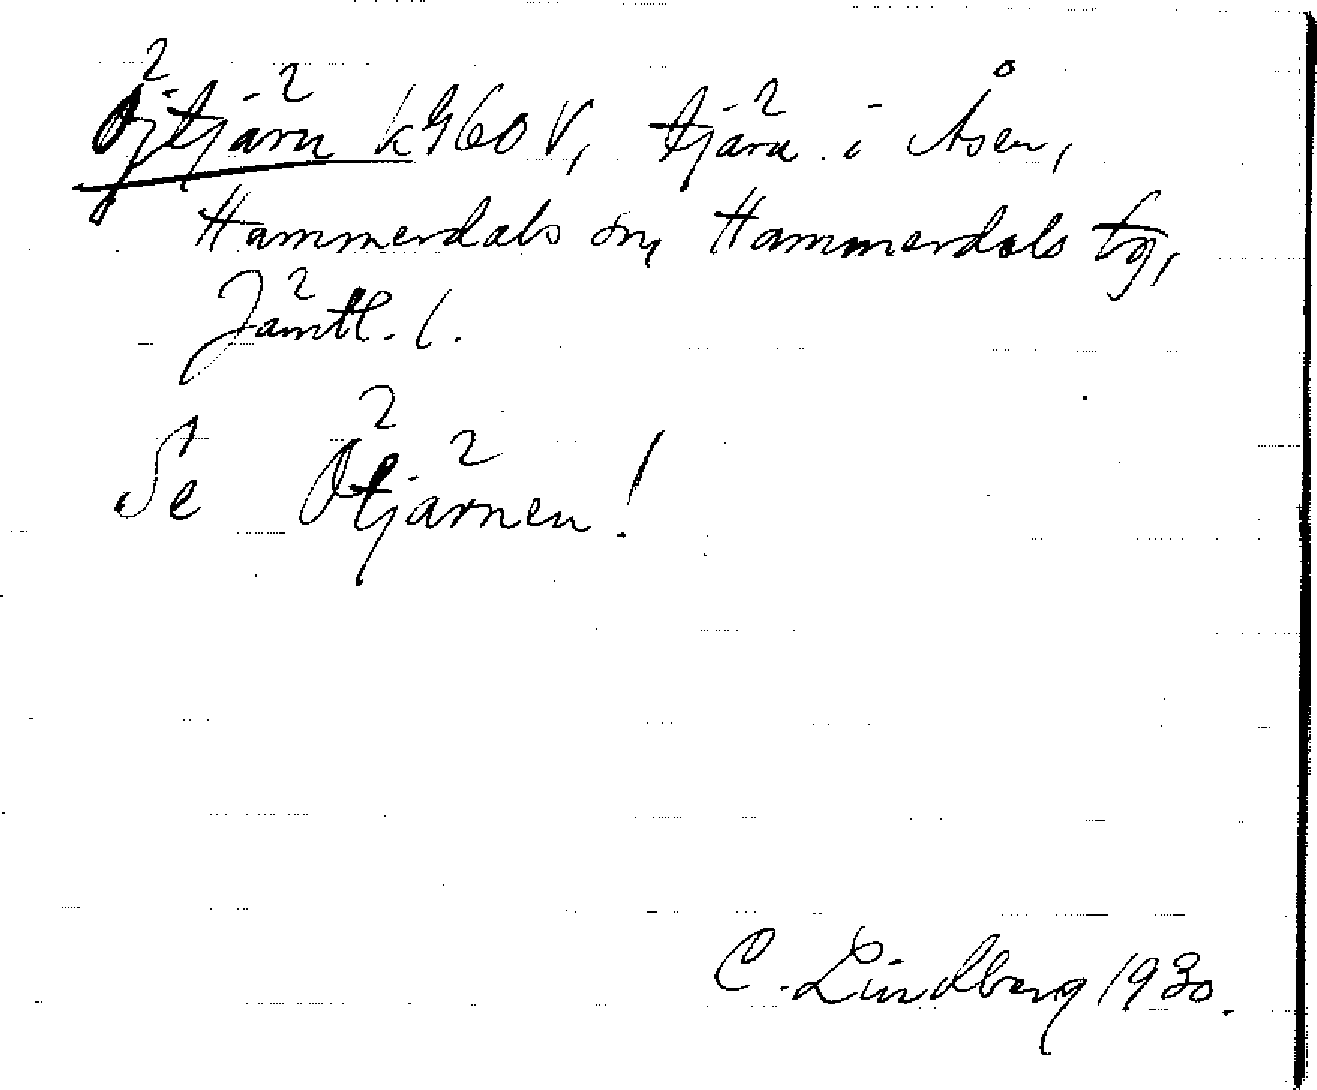 Öjtjärn k960V, tjärn i Åsen,
Hammerdals sn, Hammerdals tg,
Jämtl. l.
Se Ötjärnen!
C. Lindberg 1930.